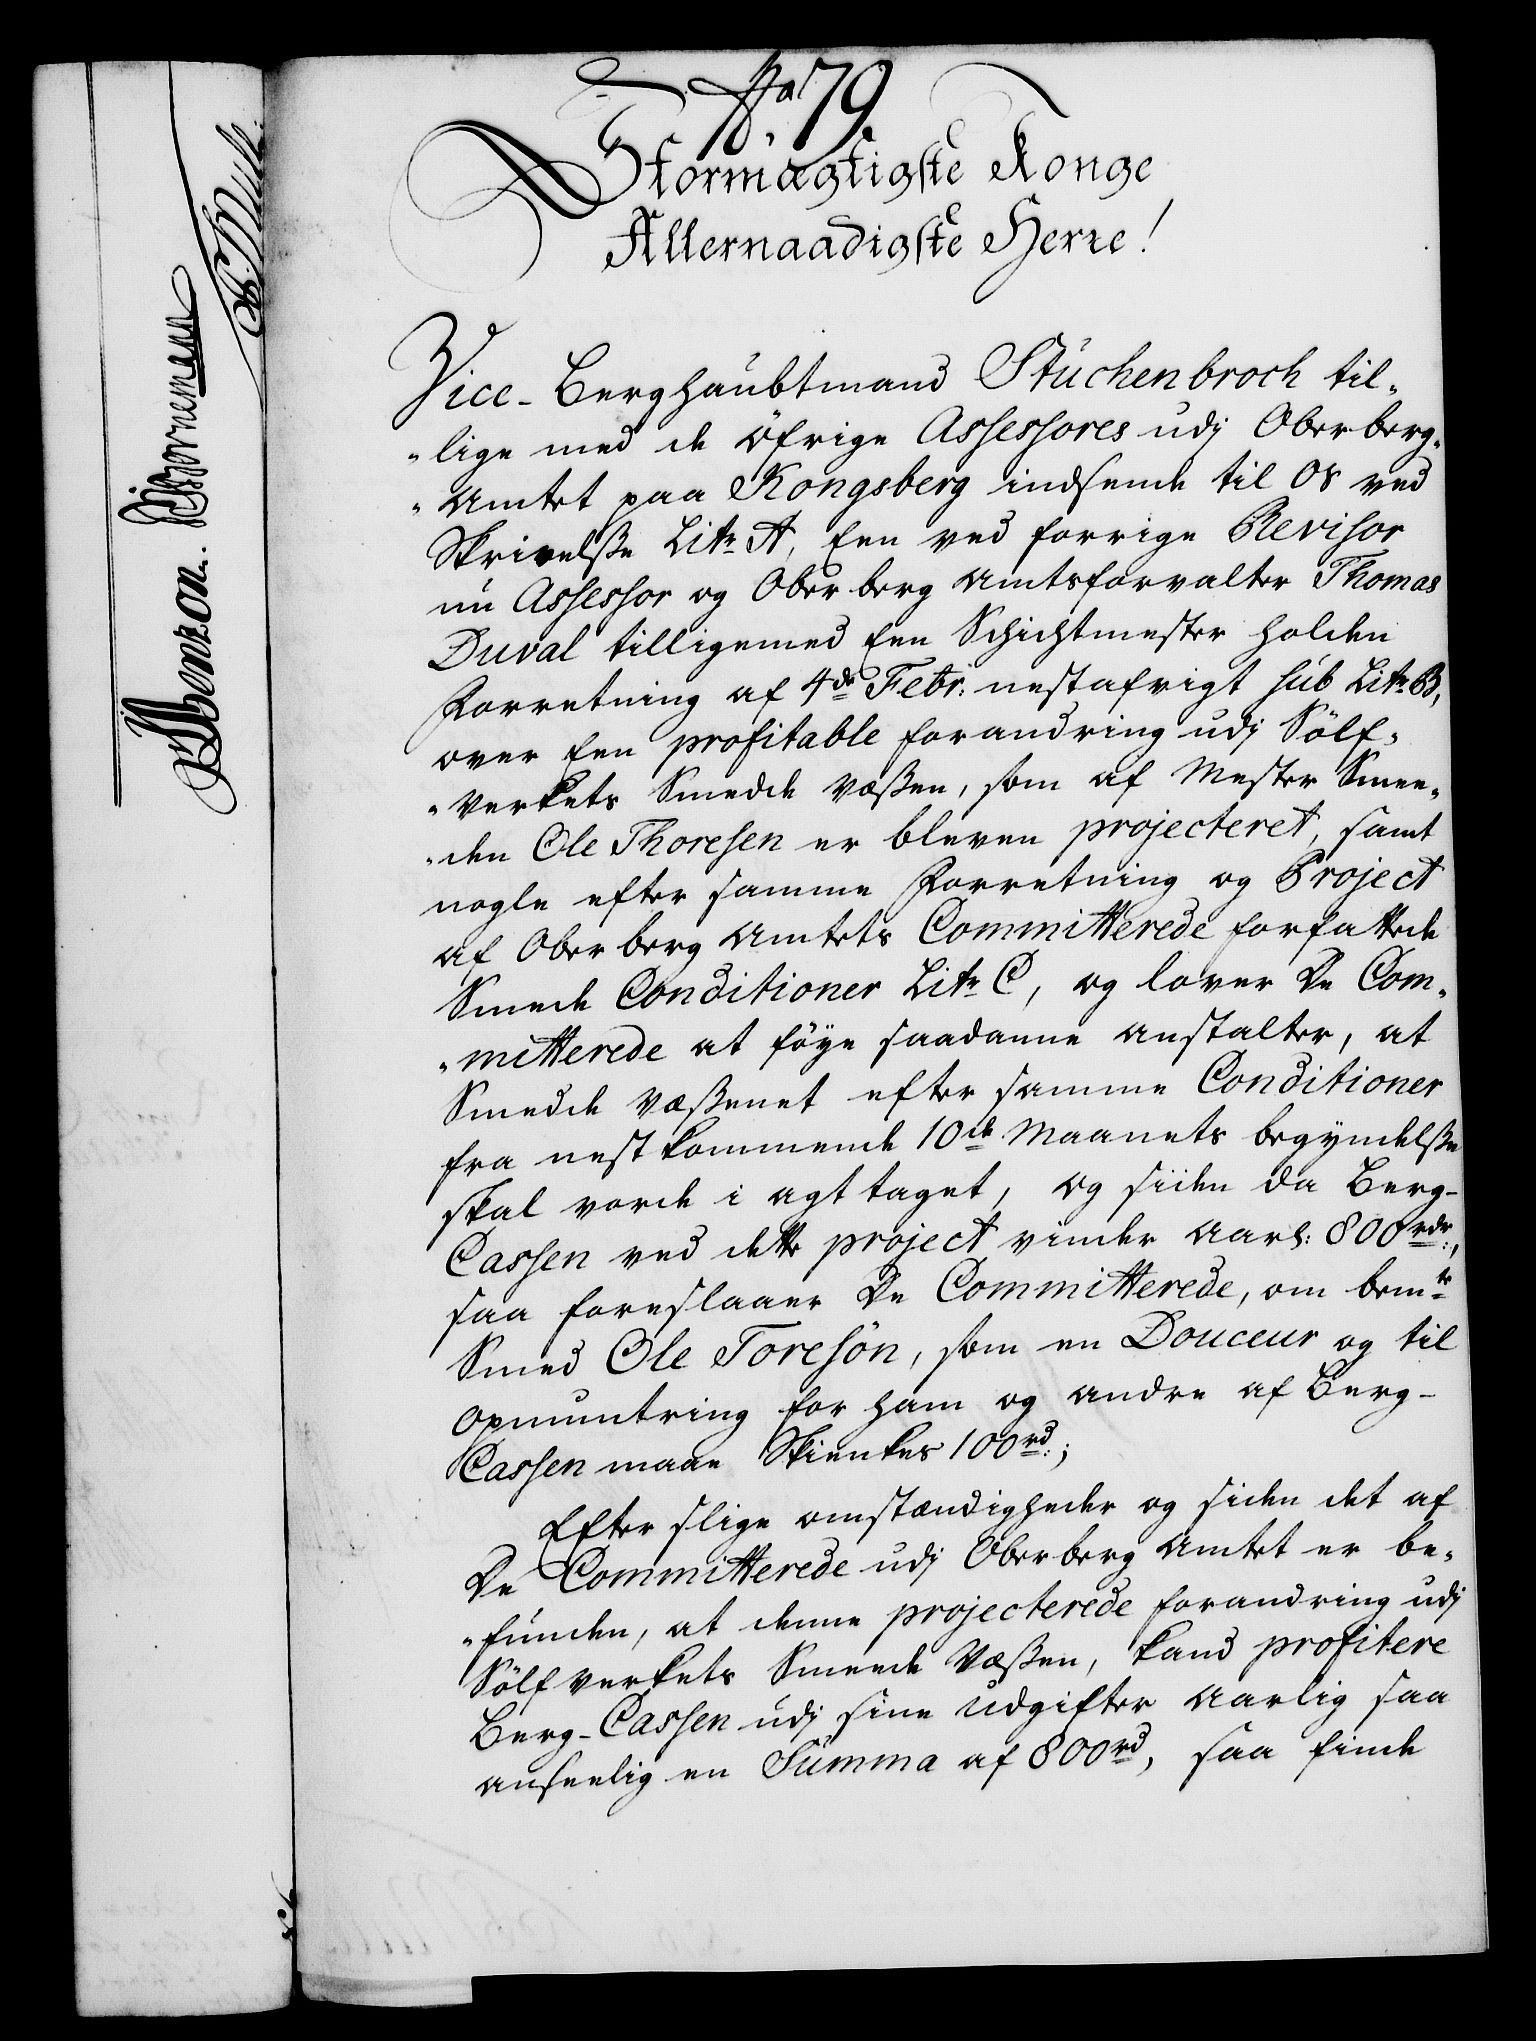 No. 79.
Stormægtigste Konge
Allernaadigste Herre!
Vice-Berghaubtmand Stuchenbroch til-
"lige med de öfrige Assessores udj Oberberg-
"Amtet paa Kongsberg indsende til os ved
Skrivelsse Litr A, Een ved forrige Revisor
nu Assessor og Oberberg Amtsforvalter Thomas
Duval tilligemed Een Schichtmester holden
Forretning af 4de Febr: nestafvigt sub Litr B,
over Een profitable forandring udj Sölf-
"verkets Smedde Væssen, som af Mester Smee-
"den Ole Thoresen er bleven projecteret, samt
nogle efter samme Forretning og Project
af Oberberg Amtets Committerede forfattede
Smede Conditioner Litr C, og lover De Com-
"mitterede at föye saadanne anstalter, at
Smedde Væssenet efter samme Conditioner
fra nestkommende 10de Maanets begyndelsse
skal vorde i agt taget, og siiden da Berg-
Cassen ved dette project vinder Aarl: 800 rdr:,
saa foreslaaer De Committerede, om bemte
Smed Ole Toresön, som en Douceur og til
opmuntring for ham og andre af Berg-
Cassen maae Skienkes 100 rd:;
Efter slige omstændigheder og siden det af
De Committerede udj Oberberg Amtet er be-
"funden, at denne projecterede forandring udj
Sölfverkets Smeede Væssen, kand profitere
Berg-Cassen udj sine Udgifter Aarlig saa
anseelig en Summa af 800 rd, saa finde
Benzon. Bornemann